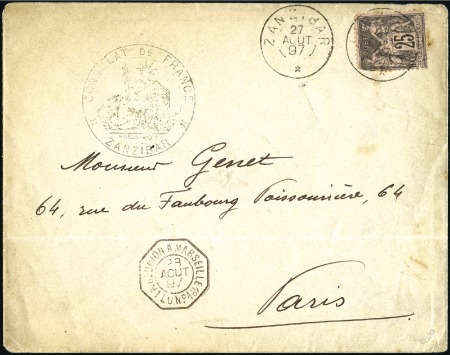 ZANZIBAR
27
AOUT
97
25
CONSULAT DE FRANCE
ZANZIBAR
Monsieur Genet
64, rue du Faubourg Poissonnière, 64
Paris
LA REUNION A MARSEILLE
28
AOUT
97